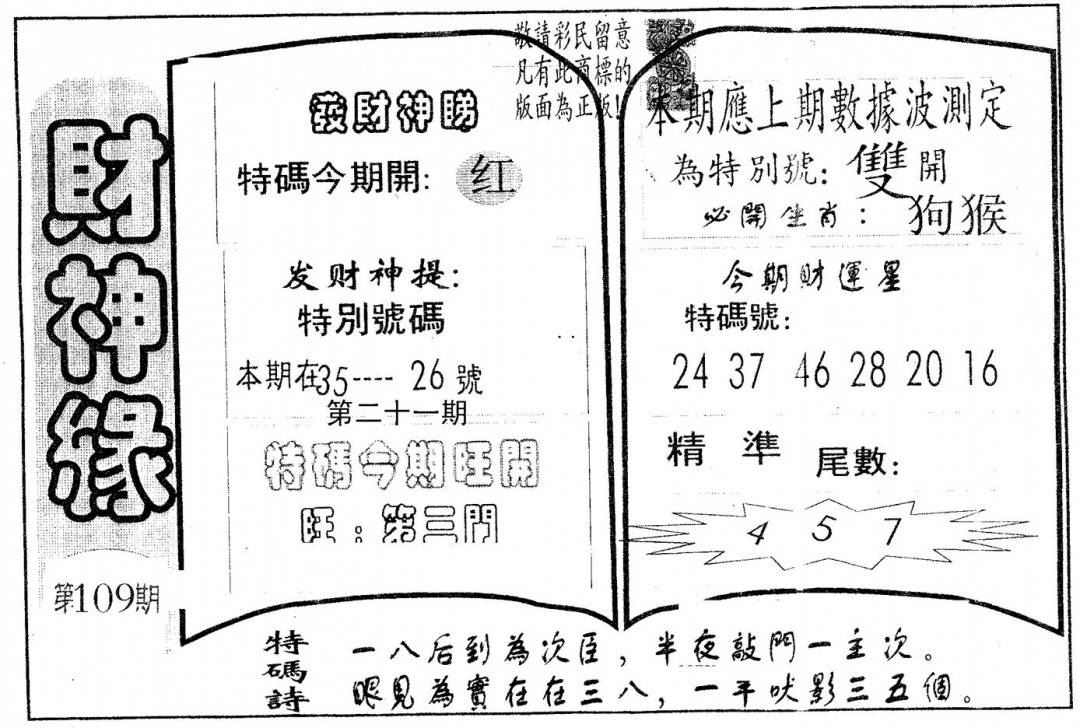 財神緣
第109期
敬請彩民留意
凡有此商標的
版面為正版!
發財神睇
特碼今期開: 红
发财神提:
特別號碼
本期在35---- 26 號
第二十一期
特碼今期旺開
旺:第三門
本期應上期數據波測定
為特別號: 雙 開
必開生肖: 狗猴
今期財運星
特碼號:
24 37 46 28 20 16
精 準 尾數:
4 5 7
特碼詩
一八后到為次臣,半夜敲門一主次。
眼見為實在在三八,一平吠影三五個。